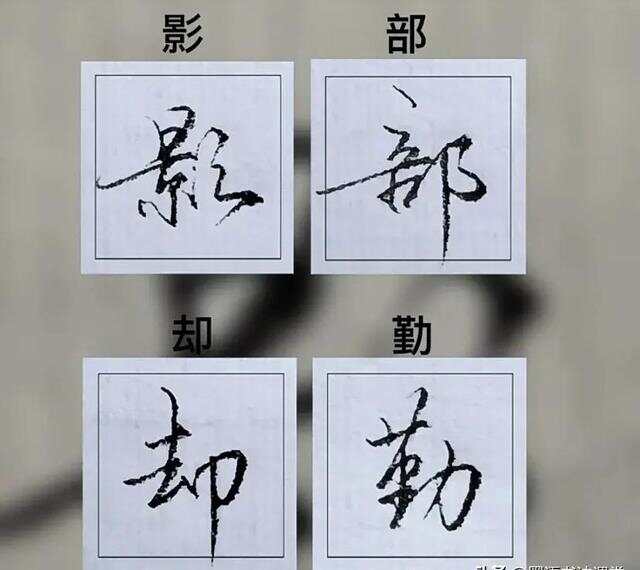 影 部
影 部
却 勤
却 勤